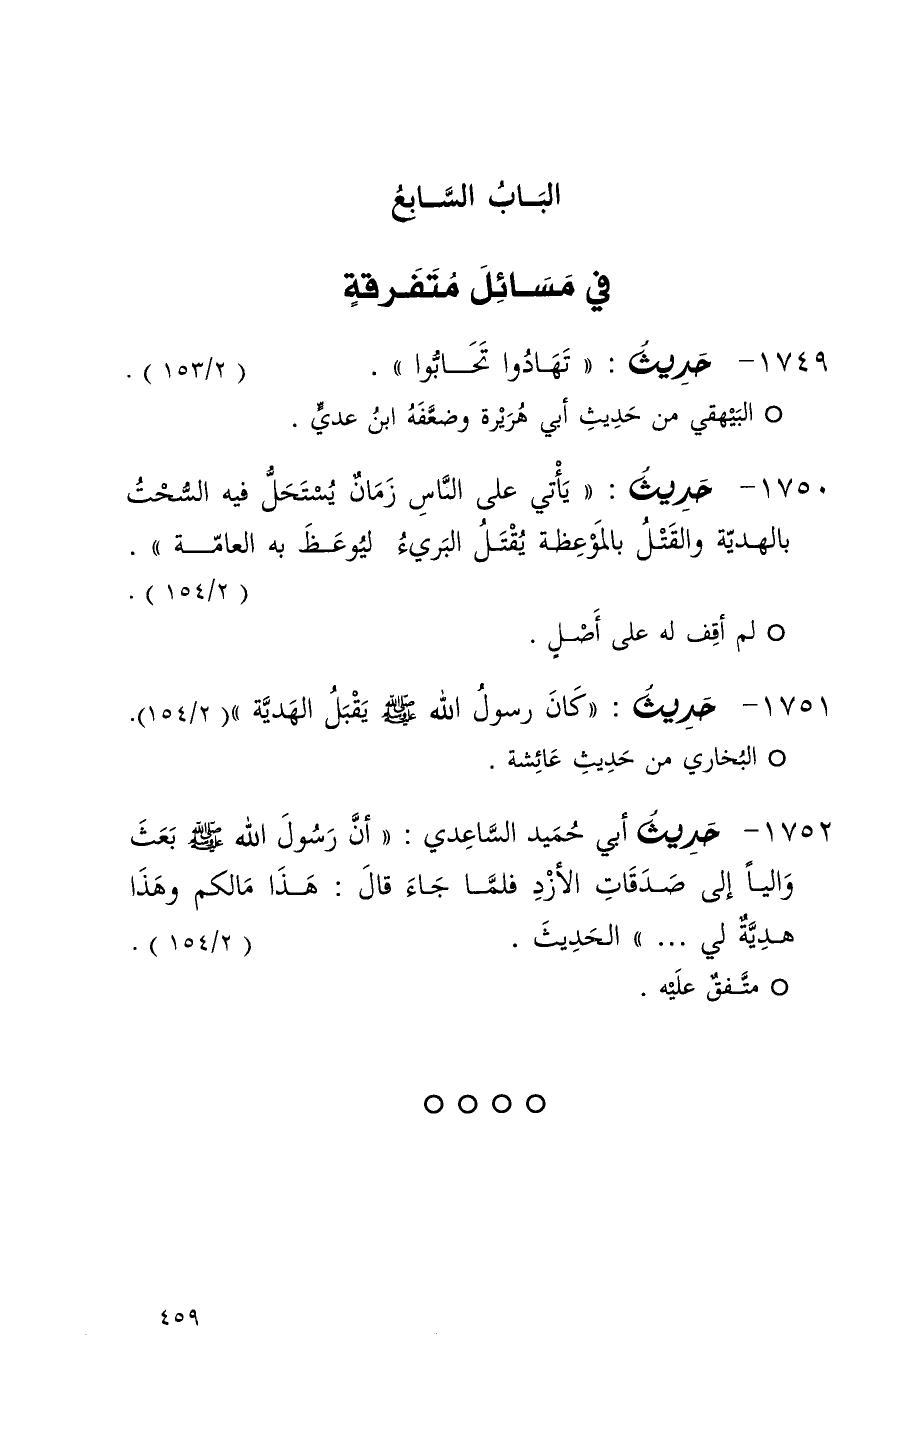 البَـابُ السَّـابِعُ
في مَسَـائِلَ مُتَفَـرقةٍ
١٧٤٩- حَدِيثُ : « تَهَادُوا تَحَـابُّوا » . ( ١٥٣/٢ ) .
○ البَيْهقي من حَدِيثِ أبي هُرَيْرة وضعَّفَهُ ابنُ عديٍّ .
١٧٥٠- حَدِيثُ : « يَأْتي على النَّاسِ زَمَانٌ يُسْتَحَلُّ فيه السُّحْتُ
بالهـديّة والقَتْلُ بالمَوْعِظـة يُقْتَـلُ البَريءُ ليُوعَـظَ به العامّـة » .
( ١٥٤/٢ ) .
○ لم أقِف له على أَصْـلٍ .
١٧٥١- حَدِيثُ : «كَانَ رسولُ الله ﷺ يَقْبَلُ الهَديَّة »( ١٥٤/٢).
○ البُخاري من حَدِيثِ عَائِشة .
١٧٥٢- حَدِيثُ أبي حُمَيد السَّاعِدي : « أنَّ رَسُولَ الله ﷺ بَعَثَ
وَالياً إلى صَـدَقَاتِ الأزْدِ فلمَّـا جَاءَ قالَ : هَـذَا مَالكم وهَذَا
هـدِيَّةٌ لي ... » الحَدِيثَ . ( ١٥٤/٢ ) .
○ متَّـفقٌ علَيْه .
○ ○ ○ ○
٤٥٩